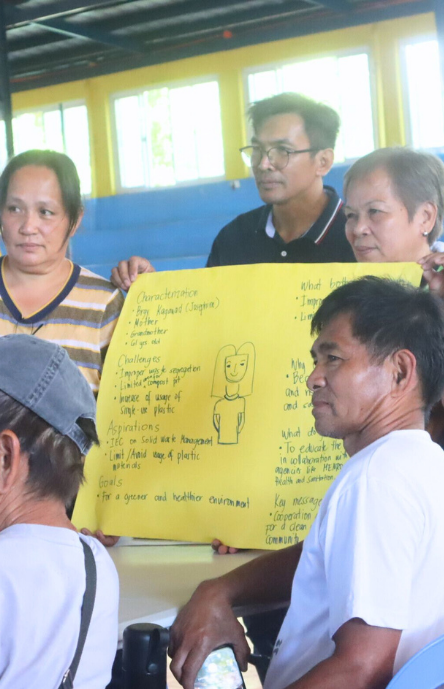 Characterization
• Brgy Kagawad (Joaquin)
• Mother
• Grandmother
• 61 yrs old
Challenges
• Improper waste segregation
• Limited compost pit
• Increase of usage of
single-use plastic
Aspirations
• IEC on Solid Waste Management
• Limit/Avoid usage of plastic
materials
Goals
• For a greener and healthier environment
What
• Impro
• Lim
Why
• Be
and
and c
What do
• To educate the
in collaboration w
agencies like MENRO
Health and Sanitation
Key message
• Cooperation
for a clean
Community